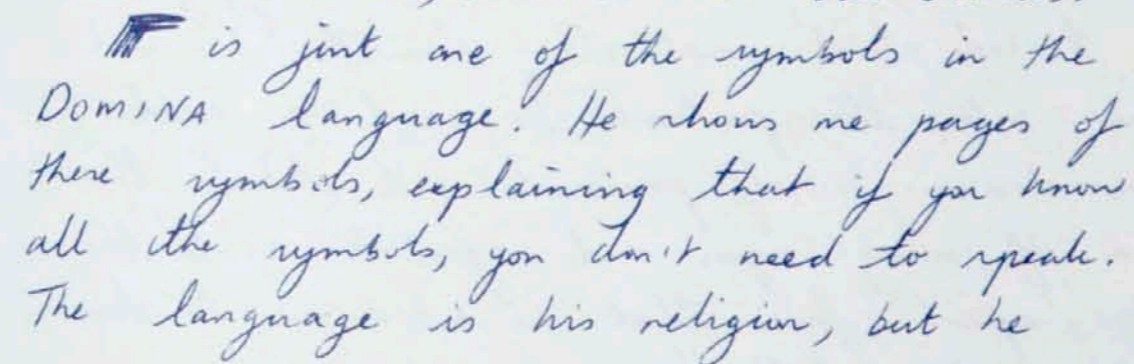 is just one of the symbols in the
DOMINA language. He shows me pages of
these symbols, explaining that if you know
all the symbols, you don't need to speak.
The language is his religion, but he